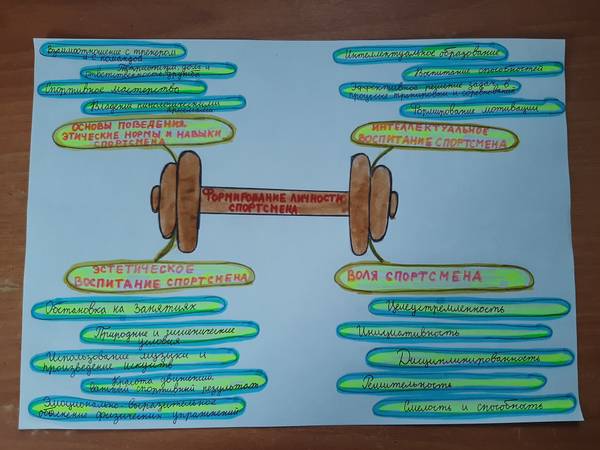 Взаимоотношение с тренером
и с командой
Спортивное мастерство
Владение
ОСНОВЫ ПОВЕДЕНИЯ,
ЭТИЧЕСКИЕ НОРМЫ И НАВЫКИ
СПОРТСМЕНА
Интеллектуальное образование
Воспитание способностей
Эффективное решение задач в
процессе тренировки и соревнований
Формирование мотивации
ИНТЕЛЛЕКТУАЛЬНОЕ
ВОСПИТАНИЕ СПОРТСМЕНА
ФОРМИРОВАНИЕ ЛИЧНОСТИ
СПОРТСМЕНА
ЭСТЕТИЧЕСКОЕ
ВОСПИТАНИЕ СПОРТСМЕНА
Обстановка на занятиях
Природные и гигиенические
условия
Использование музыки и
произведение искусств
Красота движений,
спортивный результат
Эмоционально-выразительное
объяснение физических упражнений
ВОЛЯ СПОРТСМЕНА
Целеустремленность
Инициативность
Дисциплинированность
Решительность
Смелость и способность